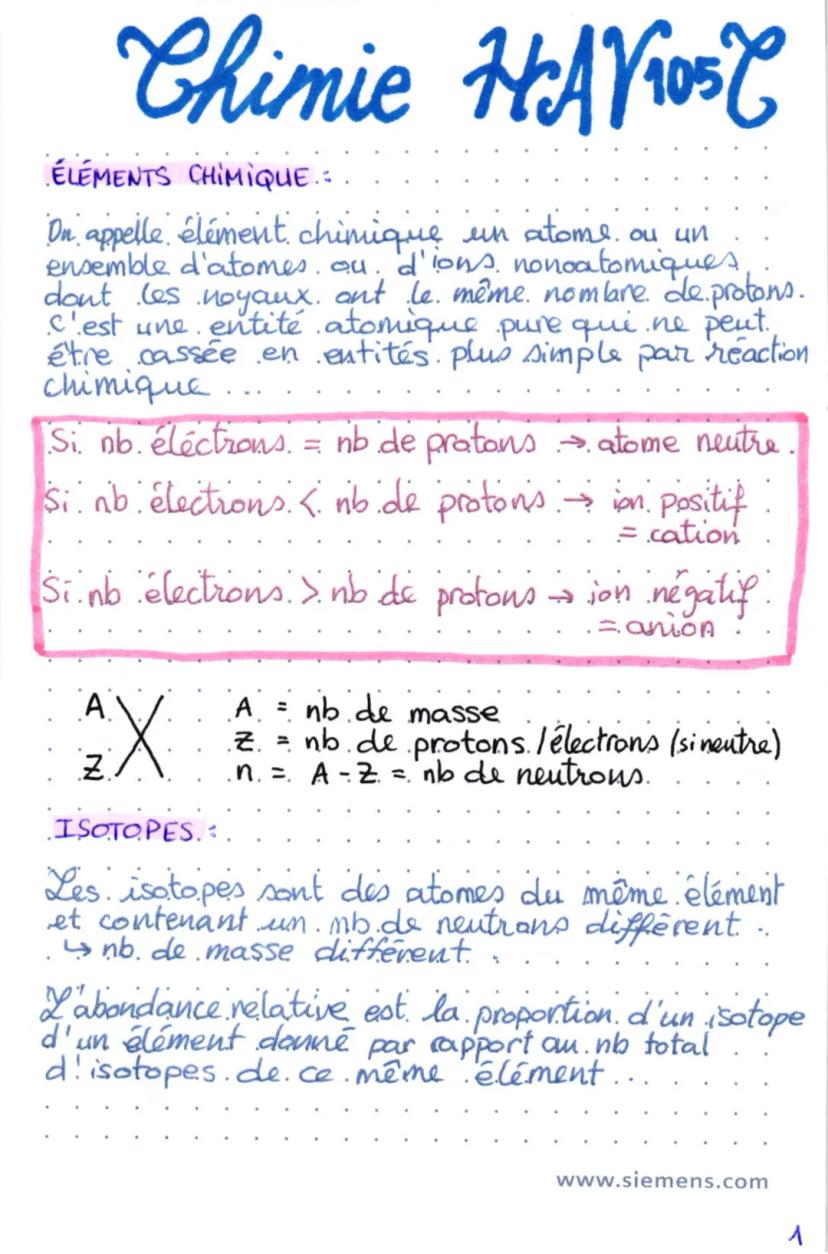 Chimie HAV105C
ÉLÉMENTS CHIMIQUE :
On appelle élément chimique un atome ou un
ensemble d'atomes ou d'ions nonoatomiques
dont les noyaux ont le même nombre de protons.
C'est une entité atomique pure qui ne peut
être cassée en entités plus simple par réaction
chimique
Si nb éléctrons = nb de protons → atome neutre.
Si nb électrons < nb de protons → ion positif
= cation
Si nb électrons > nb de protons → ion négatif
= anion
A
X
Z
A = nb de masse
Z = nb de protons / électrons (si neutre)
n = A - Z = nb de neutrons
ISOTOPES :
Les isotopes sont des atomes du même élément
et contenant un nb de neutrons différent
↳ nb de masse différent
L'abondance relative est la proportion d'un isotope
d'un élément donné par rapport au nb total
d'isotopes de ce même élément
www.siemens.com
1